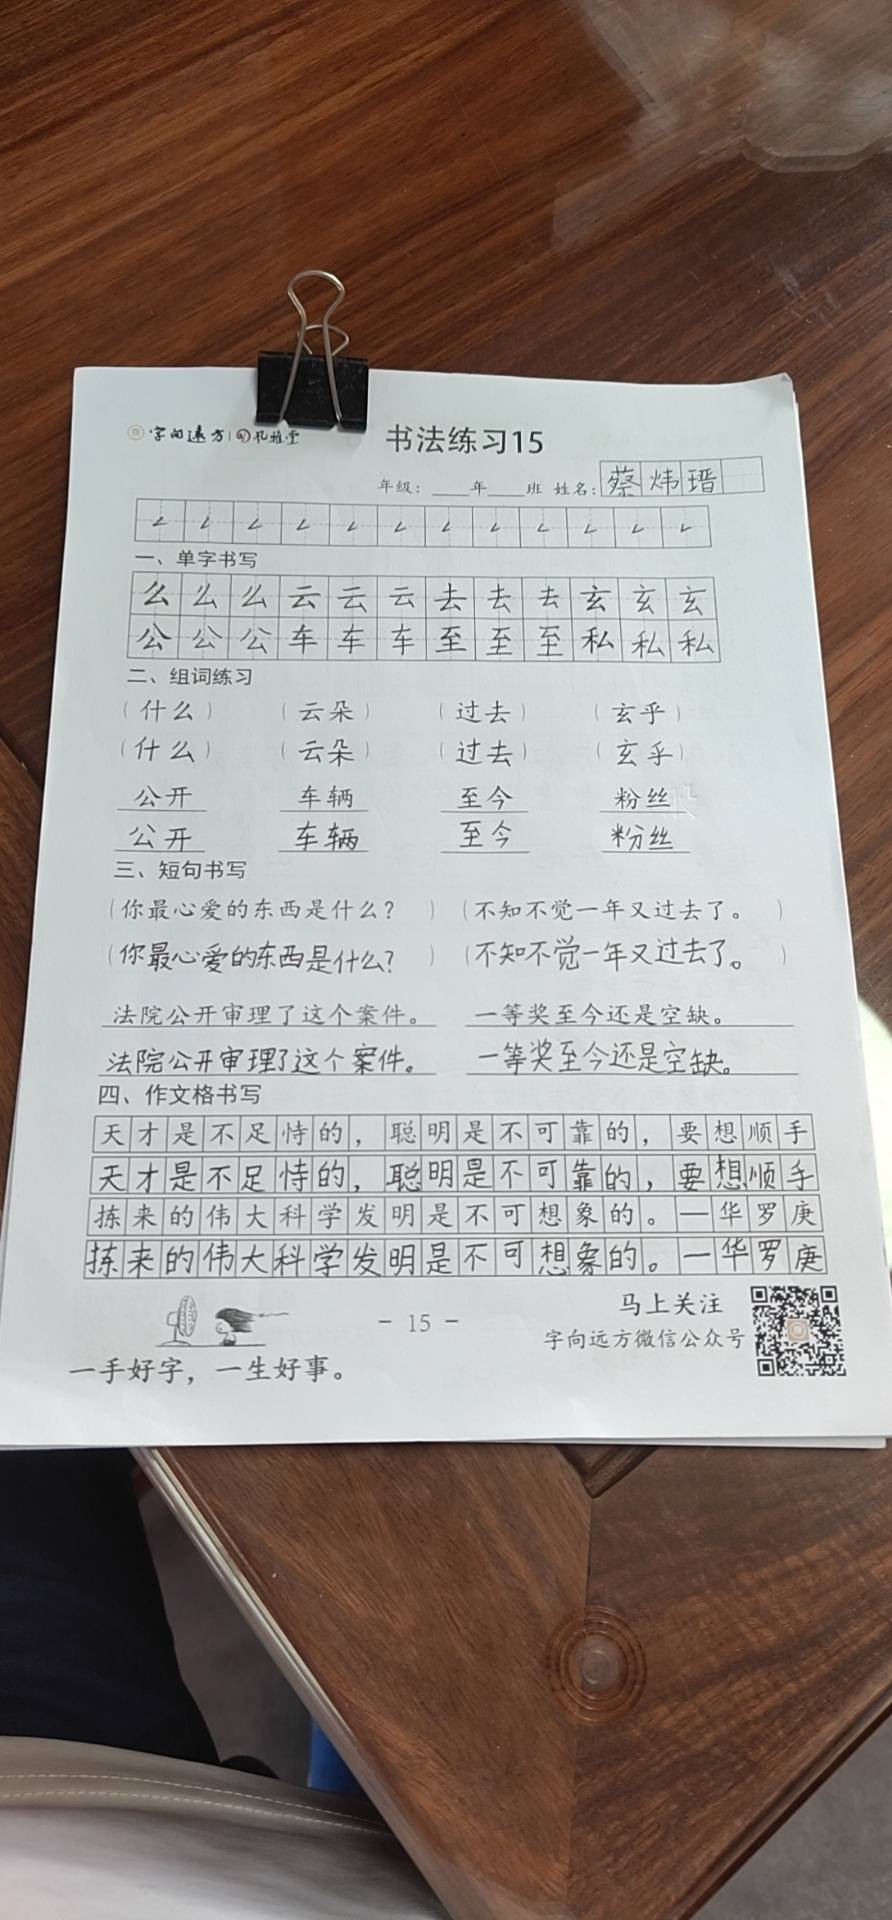 字向远方 | 风雅堂
书法练习15
年级：____年____班 姓名：蔡炜瑨
一、单字书写
么么么云云云去去去玄玄玄
公公公车车车至至至私私私
二、组词练习
（什么） （云朵） （过去） （玄乎）
（什么） （云朵） （过去） （玄乎）
公开 车辆 至今 粉丝
公开 车辆 至今 粉丝
三、短句书写
（你最心爱的东西是什么？ ） （不知不觉一年又过去了。 ）
（你最心爱的东西是什么？ ） （不知不觉一年又过去了。 ）
法院公开审理了这个案件。 一等奖至今还是空缺。
法院公开审理了这个案件。 一等奖至今还是空缺。
四、作文格书写
天才是不足恃的，聪明是不可靠的，要想顺手
天才是不足恃的，聪明是不可靠的，要想顺手
拣来的伟大科学发明是不可想象的。—华罗庚
拣来的伟大科学发明是不可想象的。—华罗庚
马上关注
- 15 -
字向远方微信公众号
一手好字，一生好事。